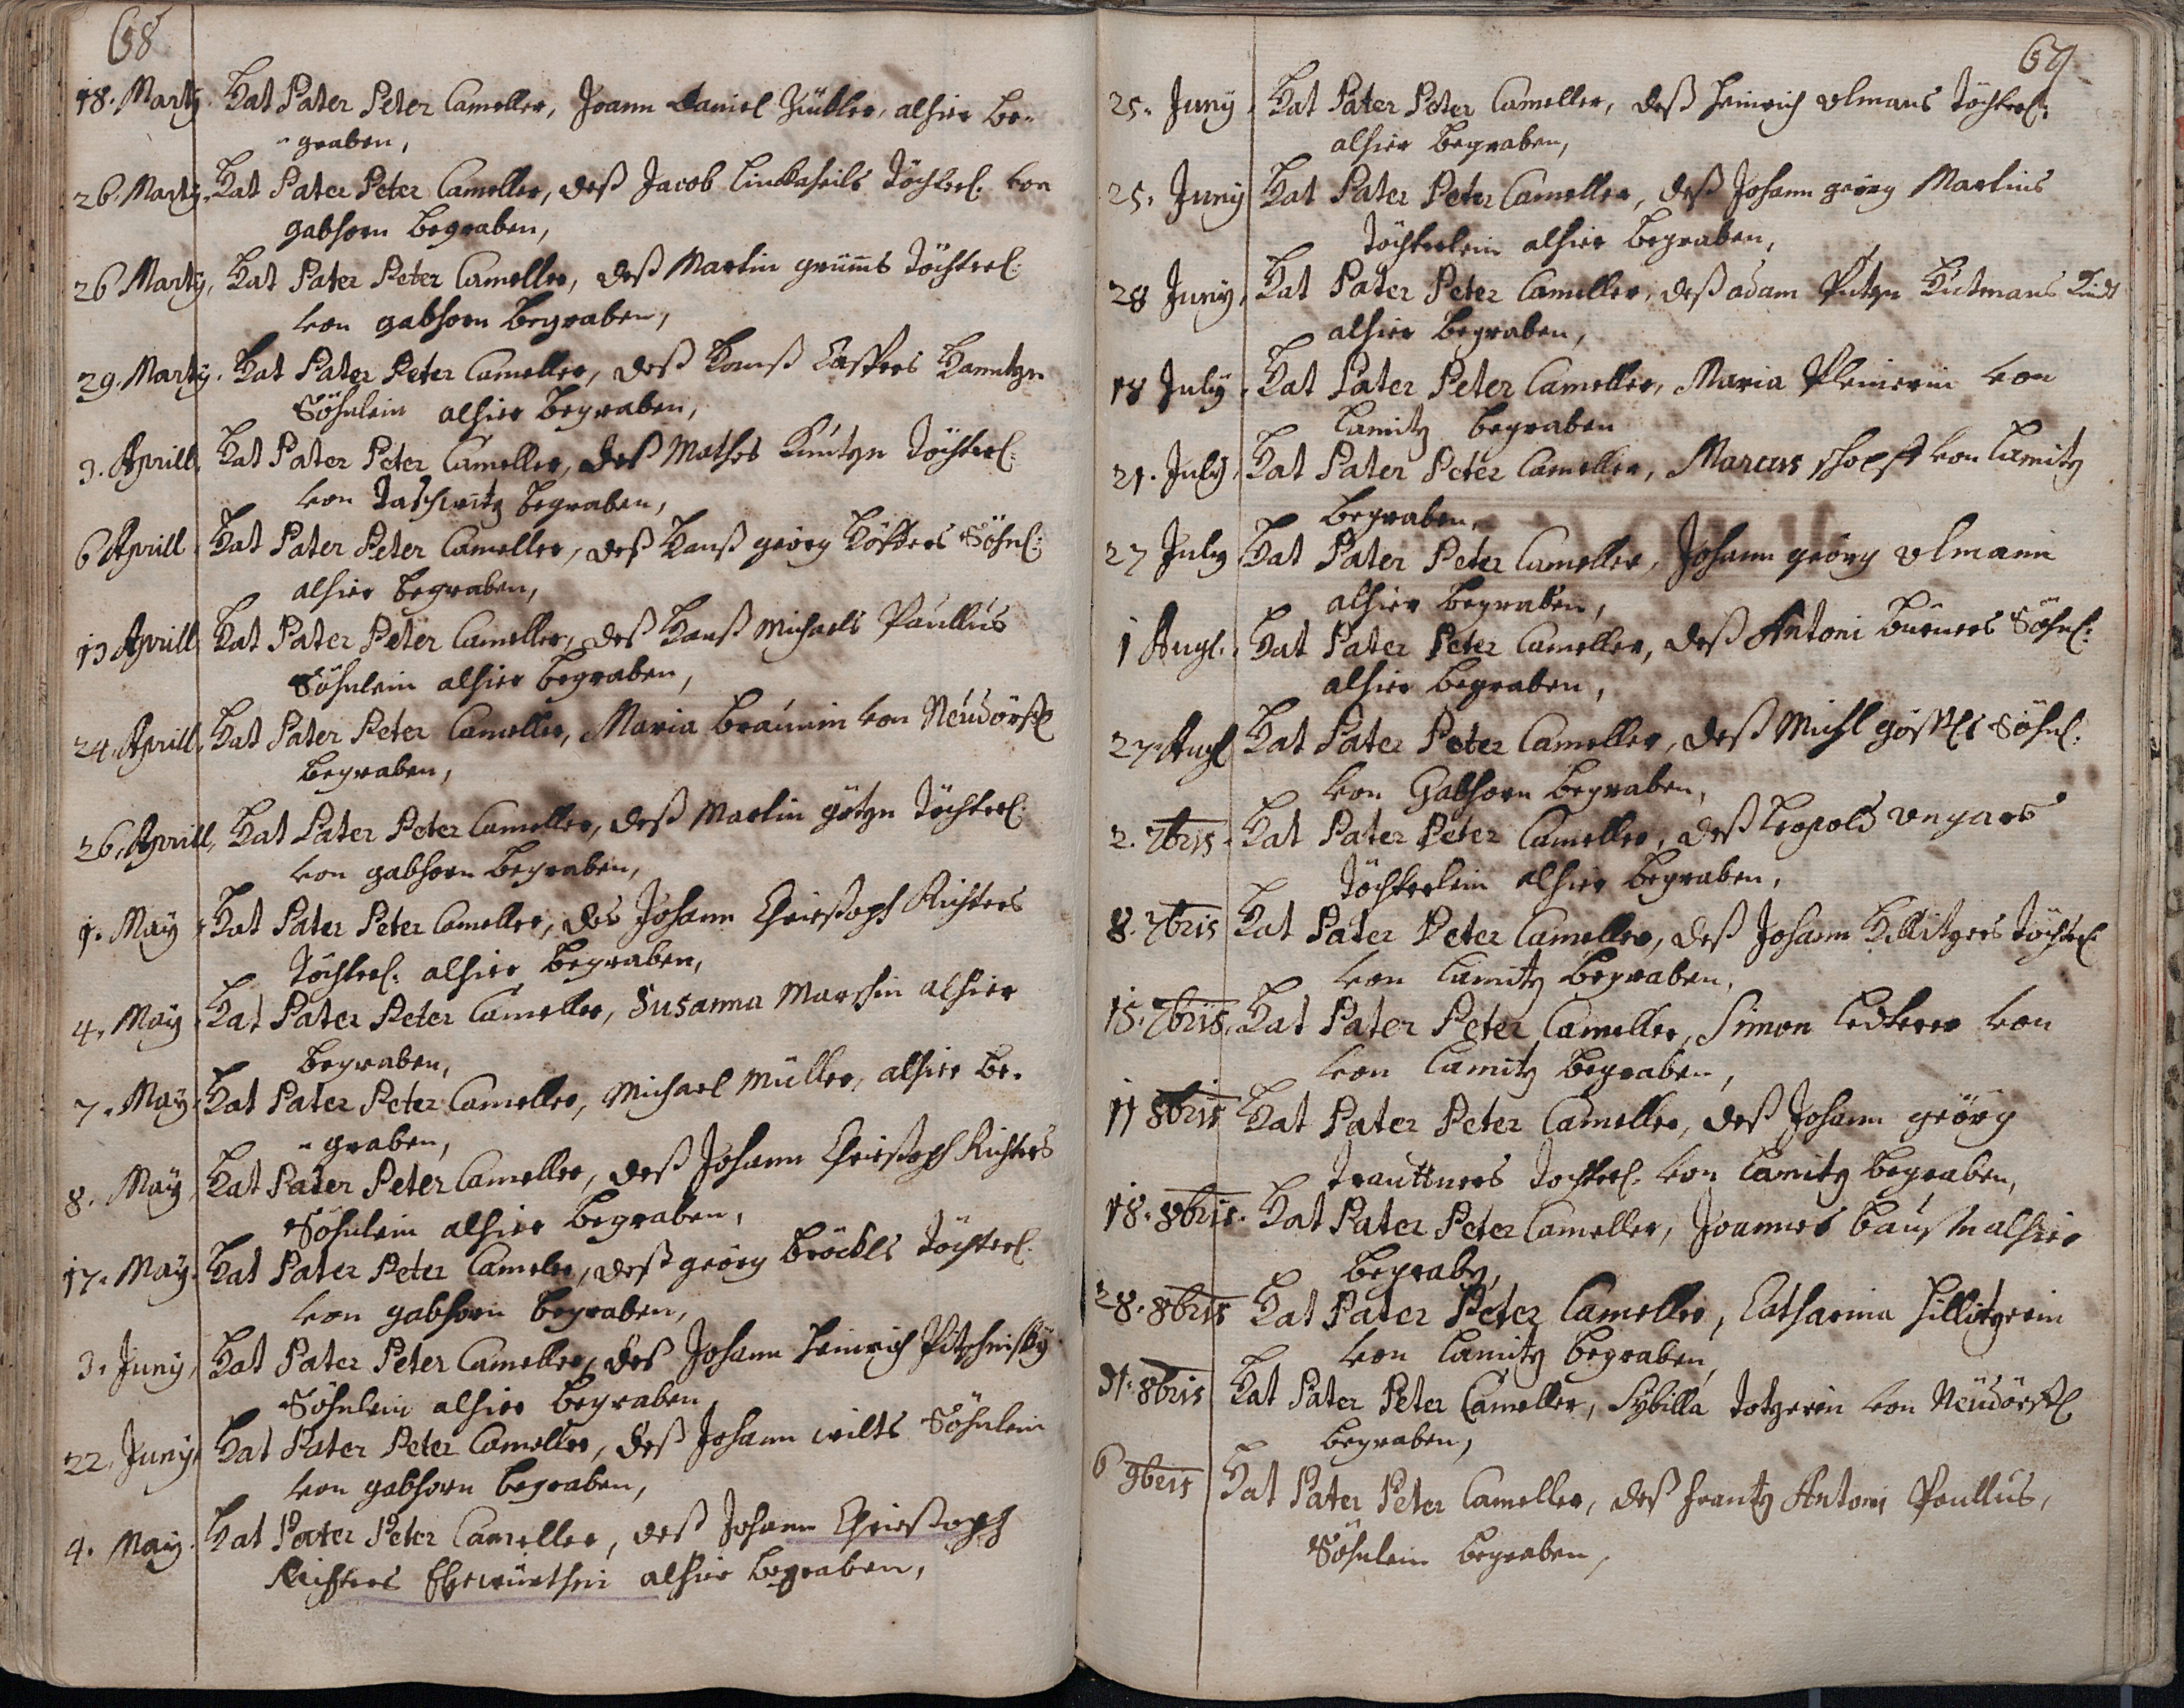 68
18. Martÿ. Hat Pater Peter Cameller, Joann Daniel alhier be-
-graben,
26. Martÿ. Hat Pater Peter Cameller, deß Jacob Linckaheils Töchterl. von
gabhorn begraben,
26 Martÿ, Hat Pater Peter Cameller, deß Martin grüms Töchterl:
von gabhorn begraben,
29. Martÿ. Hat Pater Peter Cameller, deß Hanß Caspers
Söhnlein alhier begraben,
3. Aprill. Hat Pater Peter Cameller, deß Mathes Küntzn Töchterl:
von Taschwitz begraben,
6 Aprill Hat Pater Peter Cameller, deß Hanß geörg Söhnl:
alhier begraben,
13 Aprill Hat Pater Peter Cameller, deß Hanß Michaels Paullus
Söhnlein alhier begraben,
24. Aprill. Hat Pater Peter Cameller, Maria Braünin von Neüdörfl
begraben,
26. Aprill, Hat Pater Peter Cameller, deß Martin götzn Töchterl:
von gabhorn begraben,
1. May Hat Pater Peter Cameller, des Johann Christoph Richters
Töchterl. alhier begraben,
4. May Hat Pater Peter Cameller, Susanna alhier
begraben,
7. May Hat Pater Peter Cameller, Michael Müller, alhier be-
-graben,
8. May Hat Pater Peter Cameller, deß Johann Christoph Richters
Söhnlein alhier begraben,
17. May. Hat Pater Peter Cameler, deß geörg Bröckls Töchterl.
von gabhorn begraben,
3. Junÿ, Hat Pater Peter Cameller, des Johann Heinrich
Söhnlein alhier begraben,
22. Junÿ. Hat Pater Peter Cameller, deß Johann wilts Söhnlein
von gabhorn begraben,
4. May. Hat Pater Peter Cameller, deß Johann Christoph
Richters Ehewürthin alhier begraben,
69
25. Junÿ. Hat Pater Peter Cameller, deß Heinrich Ulmans Töchterl:
alhier begraben,
25. Junÿ Hat Pater Peter Cameller, deß Johann georg Martins
Töchterlein alhier begraben,
28 Junÿ. Hat Pater Peter Cameller, deß adam Hutmans Kindt
alhier begraben,
18 Julÿ. Hat Pater Peter Cameller, Maria Pleinerin von
Lamitz begraben
21. Julÿ, Hat Pater Peter Cameller, Marcus von Lamitz
begraben,
27 Julÿ Hat Pater Peter Cameller, Johann geörg Ulmann
alhier begraben,
1 Augl. Hat Pater Peter Cameller, deß Antoni Söhnl:
alhier begraben,
27. Augl Hat Pater Peter Cameller, deß Michl Söhnl.
von Gabhorn begraben,
2. 7bris. Hat Pater Peter Cameller, deß Leopold Ungars
Töchterlein alhier begraben,
8. 7bris Hat Pater Peter Cameller, deß Johann Hillitzers Töchterl.
von Lamitz begraben,
15. 7bris. Hat Pater Peter Cameller, Simon Lederer von
von Lamitz begraben,
11 8bris Hat Pater Peter Cameller, deß Johann geörg
Trauttners Tochterl. von Lamitz begraben,
18. 8bris. Hat Pater Peter Cameller, Joannes alhier
begraben,
28. 8bris Hat Pater Peter Cameller, Catharina Hillitzerin
von Lamitz begraben,
31. 8bris Hat Pater Peter Cameller, Sÿbilla Totzerin von Neüdörfl
begraben,
6 9bris Hat Pater Peter Cameller, deß Frantz Antoni Paullus,
Söhnlein begraben,